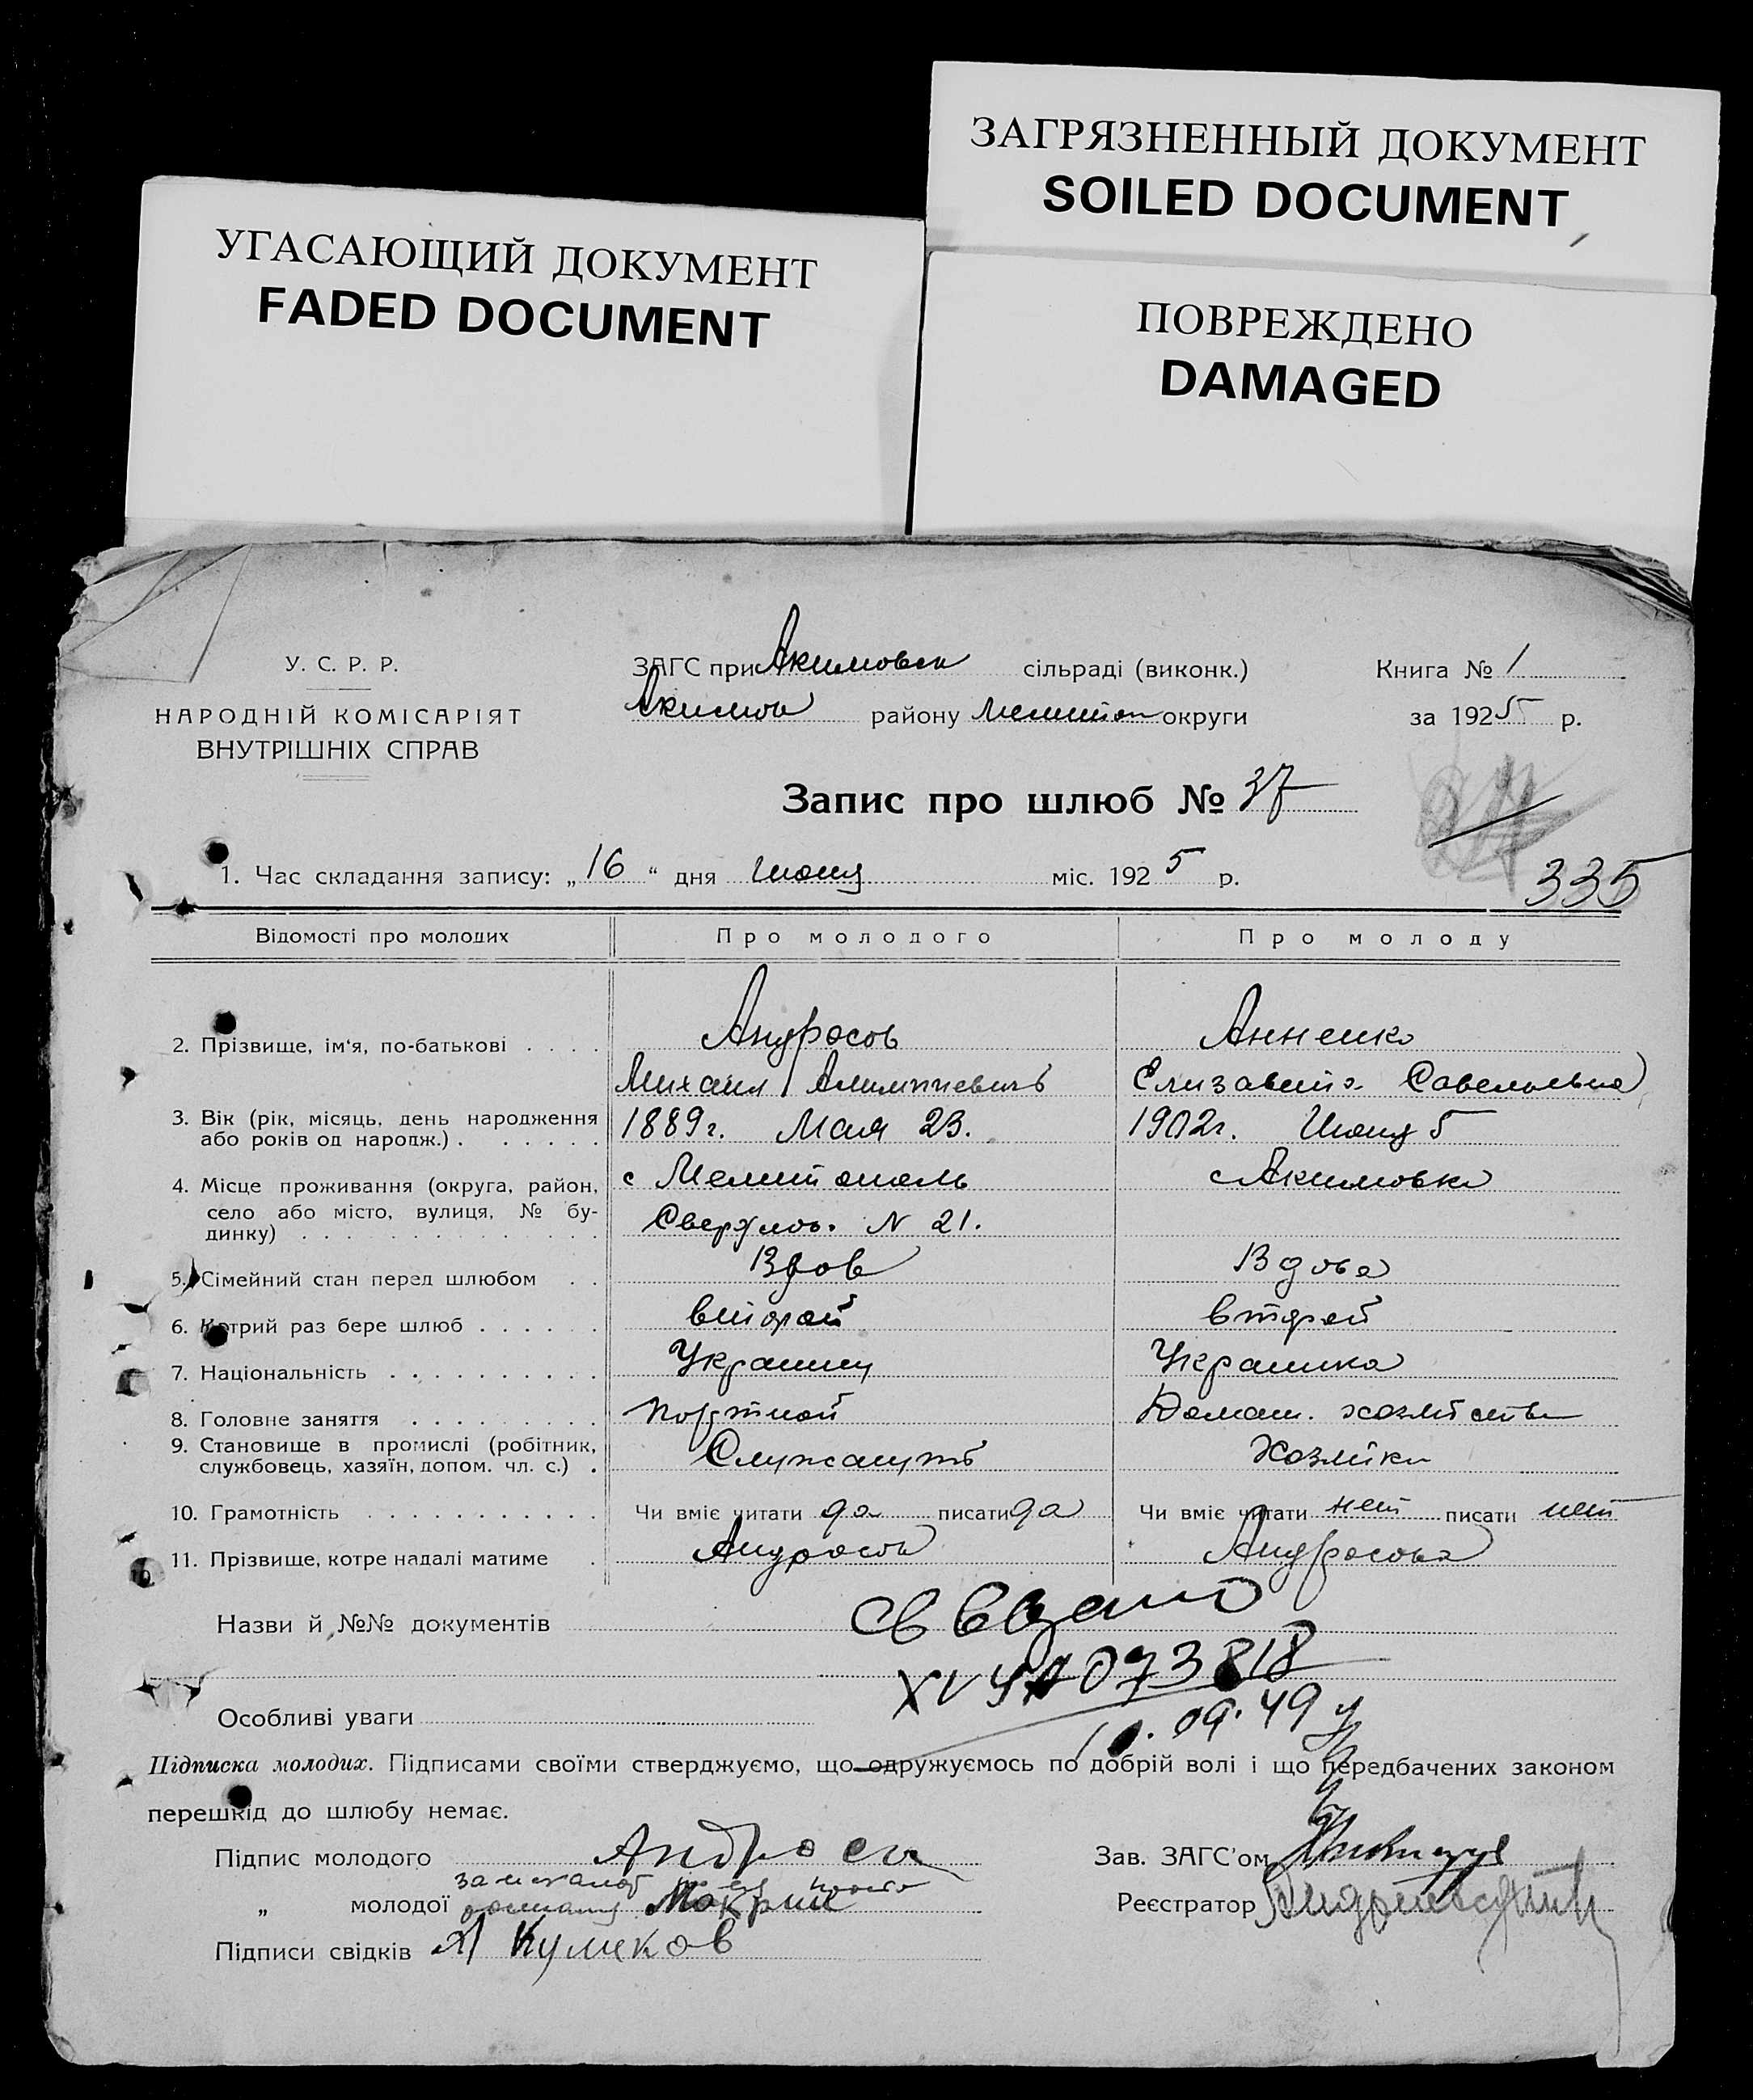 ЗАГРЯЗНЕННЫЙ ДОКУМЕНТ
SOILED DOCUMENT
УГАСАЮЩИЙ ДОКУМЕНТ
FADED DOCUMENT
ПОВРЕЖДЕНО
DAMAGED
У. С. Р. Р.
НАРОДНІЙ КОМІСАРІЯТ
ВНУТРІШНІХ СПРАВ
ЗАГС при Акимовск сільраді (виконк.)
Акимов району Мелитоп округи
Книга № 1
за 1925 р.
Запис про шлюб № 37
335
1. Час складання запису: „16“ дня июня міс. 1925 р.
Відомості про молодих Про молодого Про молоду
2. Прізвище, ім'я, по-батькові . . . . Андросов Анненко
Михаил Алимпиевичъ Елизавета Савельевна
3. Вік (рік, місяць, день народження або років од народж.) . . . . . . 1889г. Мая 23. 1902г. Июня 5
4. Місце проживання (округа, район, село або місто, вулиця, № будинку) . . . с Мелитополь с Акимовка
Свердлов. N 21.
5. Сімейний стан перед шлюбом . . Вдов Вдова
6. Котрий раз бере шлюб . . . . . . второй второй
7. Національність . . . . . . . . . . Украинец Украинка
8. Головне заняття . . . . . . . . . Портной Домаш. хозяйство
9. Становище в промислі (робітник, службовець, хазяїн, допом. чл. с.) . Служащий Хозяйка
10. Грамотність . . . . . . . . . . . Чи вміє читати да писати да Чи вміє читати нет писати нет
11. Прізвище, котре надалі матиме . Андросов Андросова
Назви й №№ документів
073818
Особливі уваги 10.09.49
Підписка молодих. Підписами своїми стверджуємо, що одружуємось по добрій волі і що передбачених законом
перешкід до шлюбу немає.
Підпис молодого Андросов
Зав. ЗАГС'ом
„ молодої Мокрий
Реєстратор
Підписи свідків Куликов